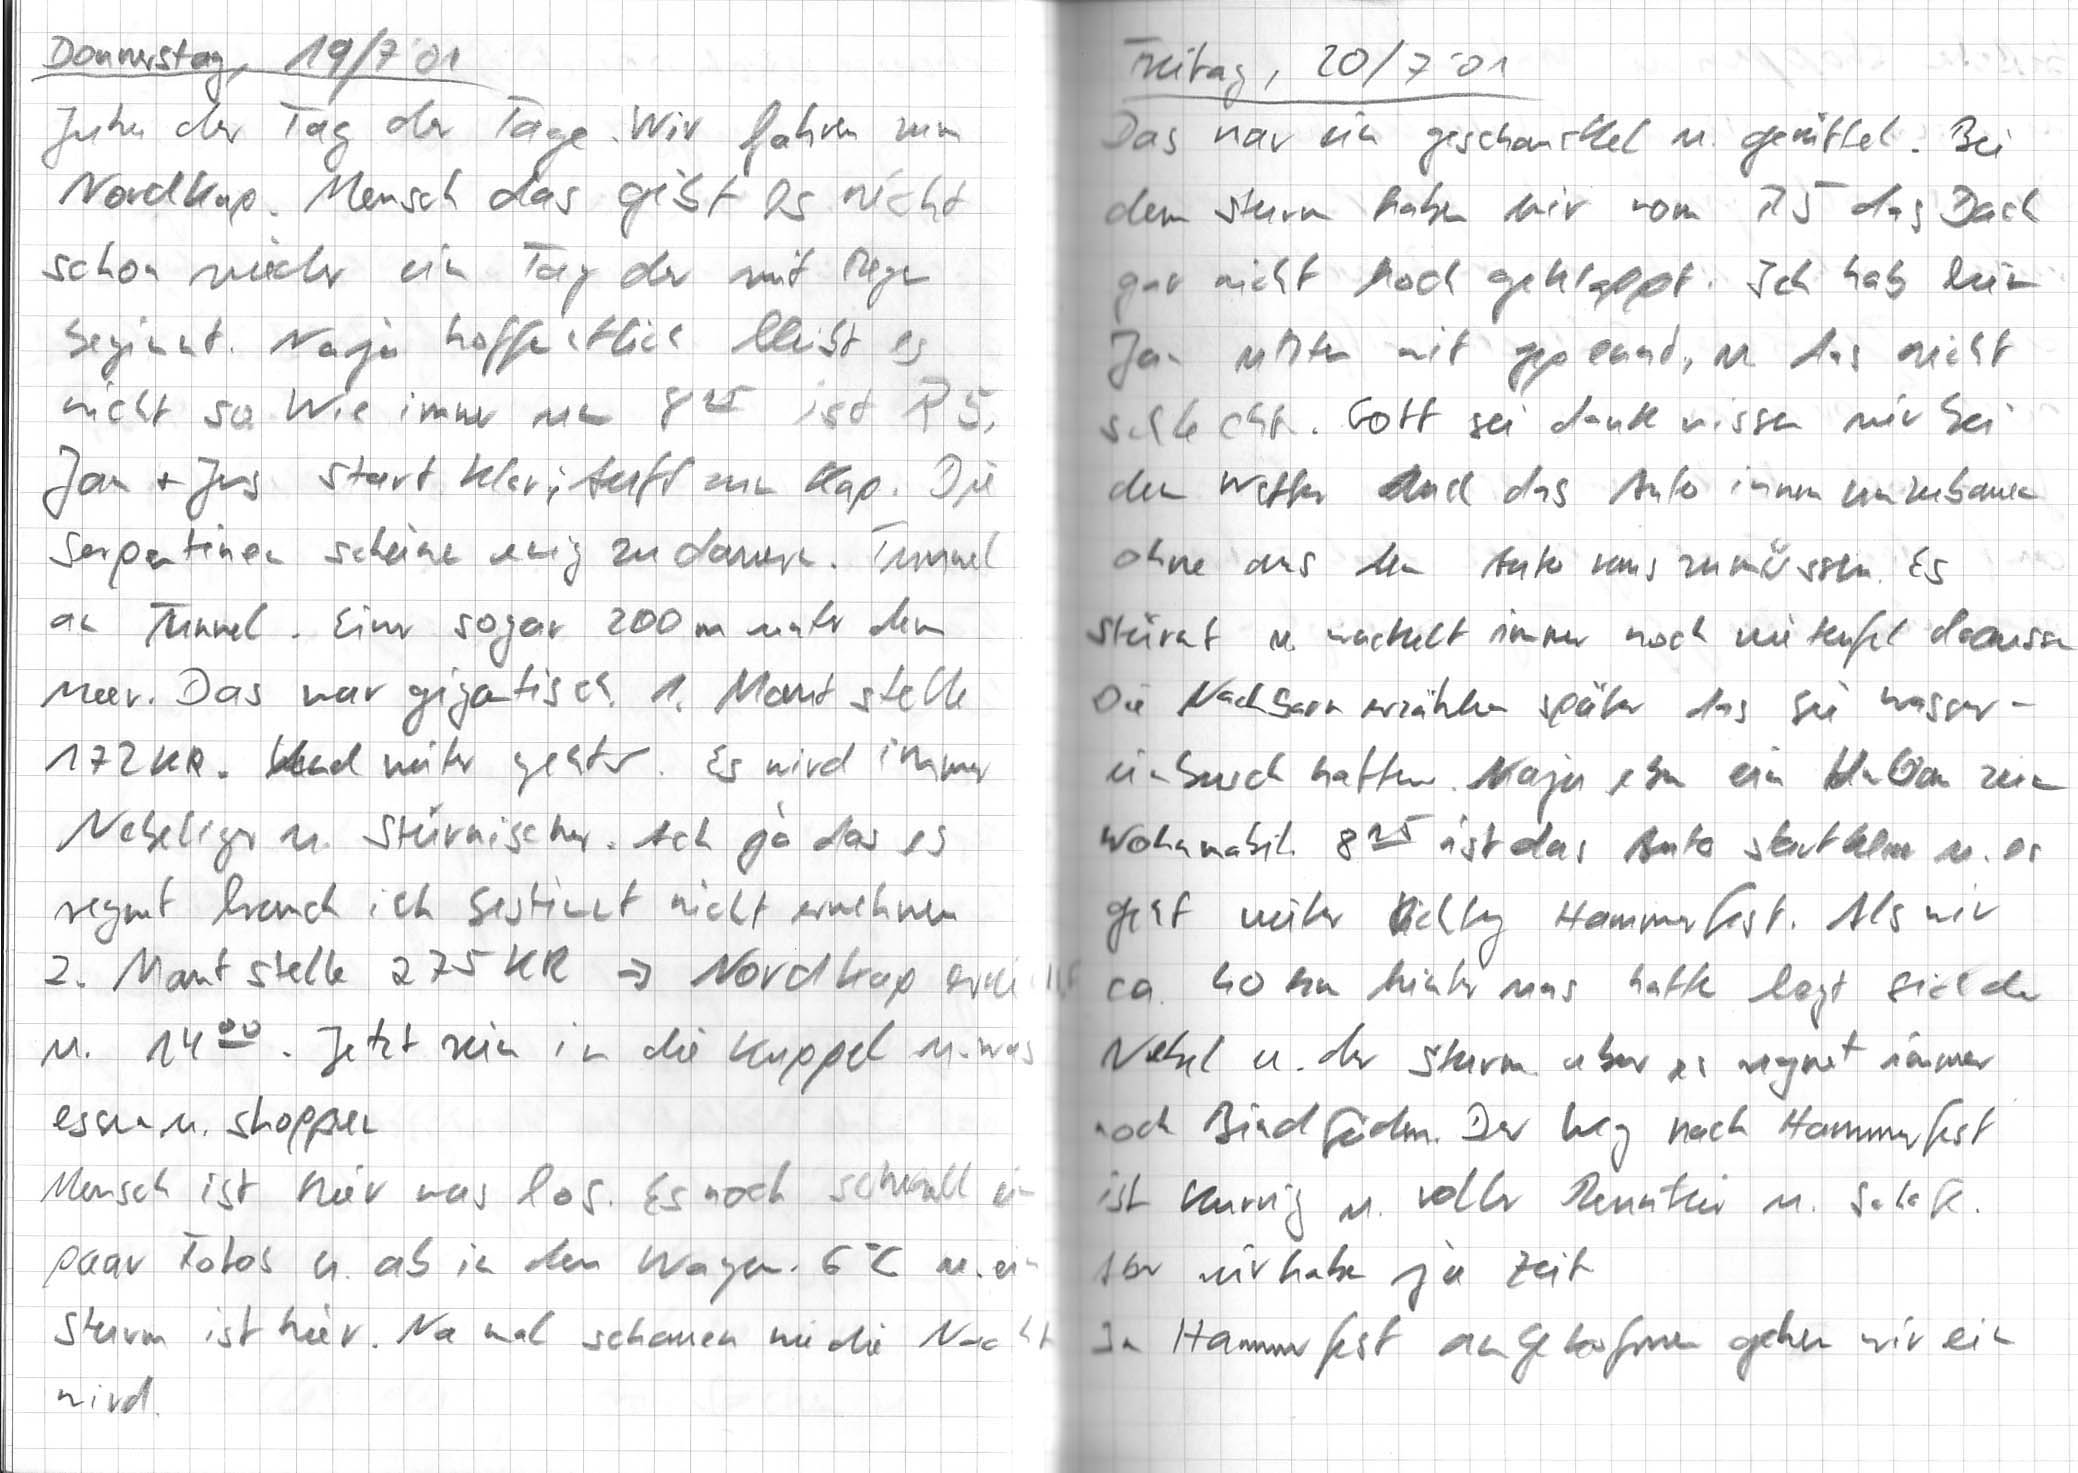 Donnerstag, 19/7'01
Juhu der Tag der Tage. Wir fahren zum
Nordkap. Mensch das gibt es nicht
schon wieder ein Tag der mit Regen
beginnt. Naja hoffentlich bleibt es
nicht so. Wie immer um 8 15 ist R5,
Jan + Jens start klar, auf zum Kap. Die
Serpentinen scheinen ewig zu dauern. Tunnel
an Tunnel. Einer sogar 200m unter dem
Meer. Das war gigantisch. 1. Maut stelle
172 KR. Und weiter gehts. Es wird immer
Nebeliger u. Stürmischer. Ach ja das es
regnet brauch ich bestimmt nicht erwehnen
2. Maut stelle 275 KR → Nordkap erreicht
u. 14 00. Jetzt rein in die Kuppel u. was
essen u. shoppen
Mensch ist hier was los. Es noch schnell ein
paar Fotos u. ab in den Wagen. 6°C u. ein
Sturm ist hier. Na mal schauen wie die Nacht
wird.
Freitag, 20/7'01
Das war ein geschauckel u. gerüttel. Bei
dem Sturm haben wir vom R5 das Dach
gar nicht hoch geklappt. Ich hab beim
Jan unten mit gepennt, u das nicht
schlecht. Gott sei dank wissen wir bei
den Wetter das Auto innen umzubauen
ohne aus dem Auto raus zumüssen. Es
stürmt u. wackelt immer noch wie teufel draussen
Die Nachbarn erzählen später das sie wasser-
einbruch hatten. Naja eben ein zum
Wohnmobil. 8 15 ist das Auto startklar u. es
geht weiter richtung Hammerfest. Als wir
ca. 40 km hinter uns hatten legt sich der
Nebel u. der Sturm aber es regnet immer
noch Bindfäden. Der Weg nach Hammerfest
ist kurvig u. voller Renntier u. Schafe.
Aber wir haben ja Zeit
In Hammerfest angekommen gehen wir ein